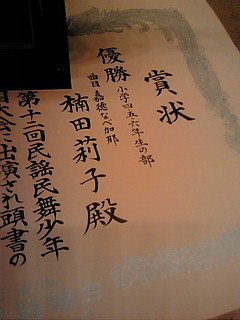 賞状
優勝
小学四五六年生の部
曲目 嘉徳なべ加那
楠田莉子殿
第十二回民謡民舞少年
大会に出演され頭書の